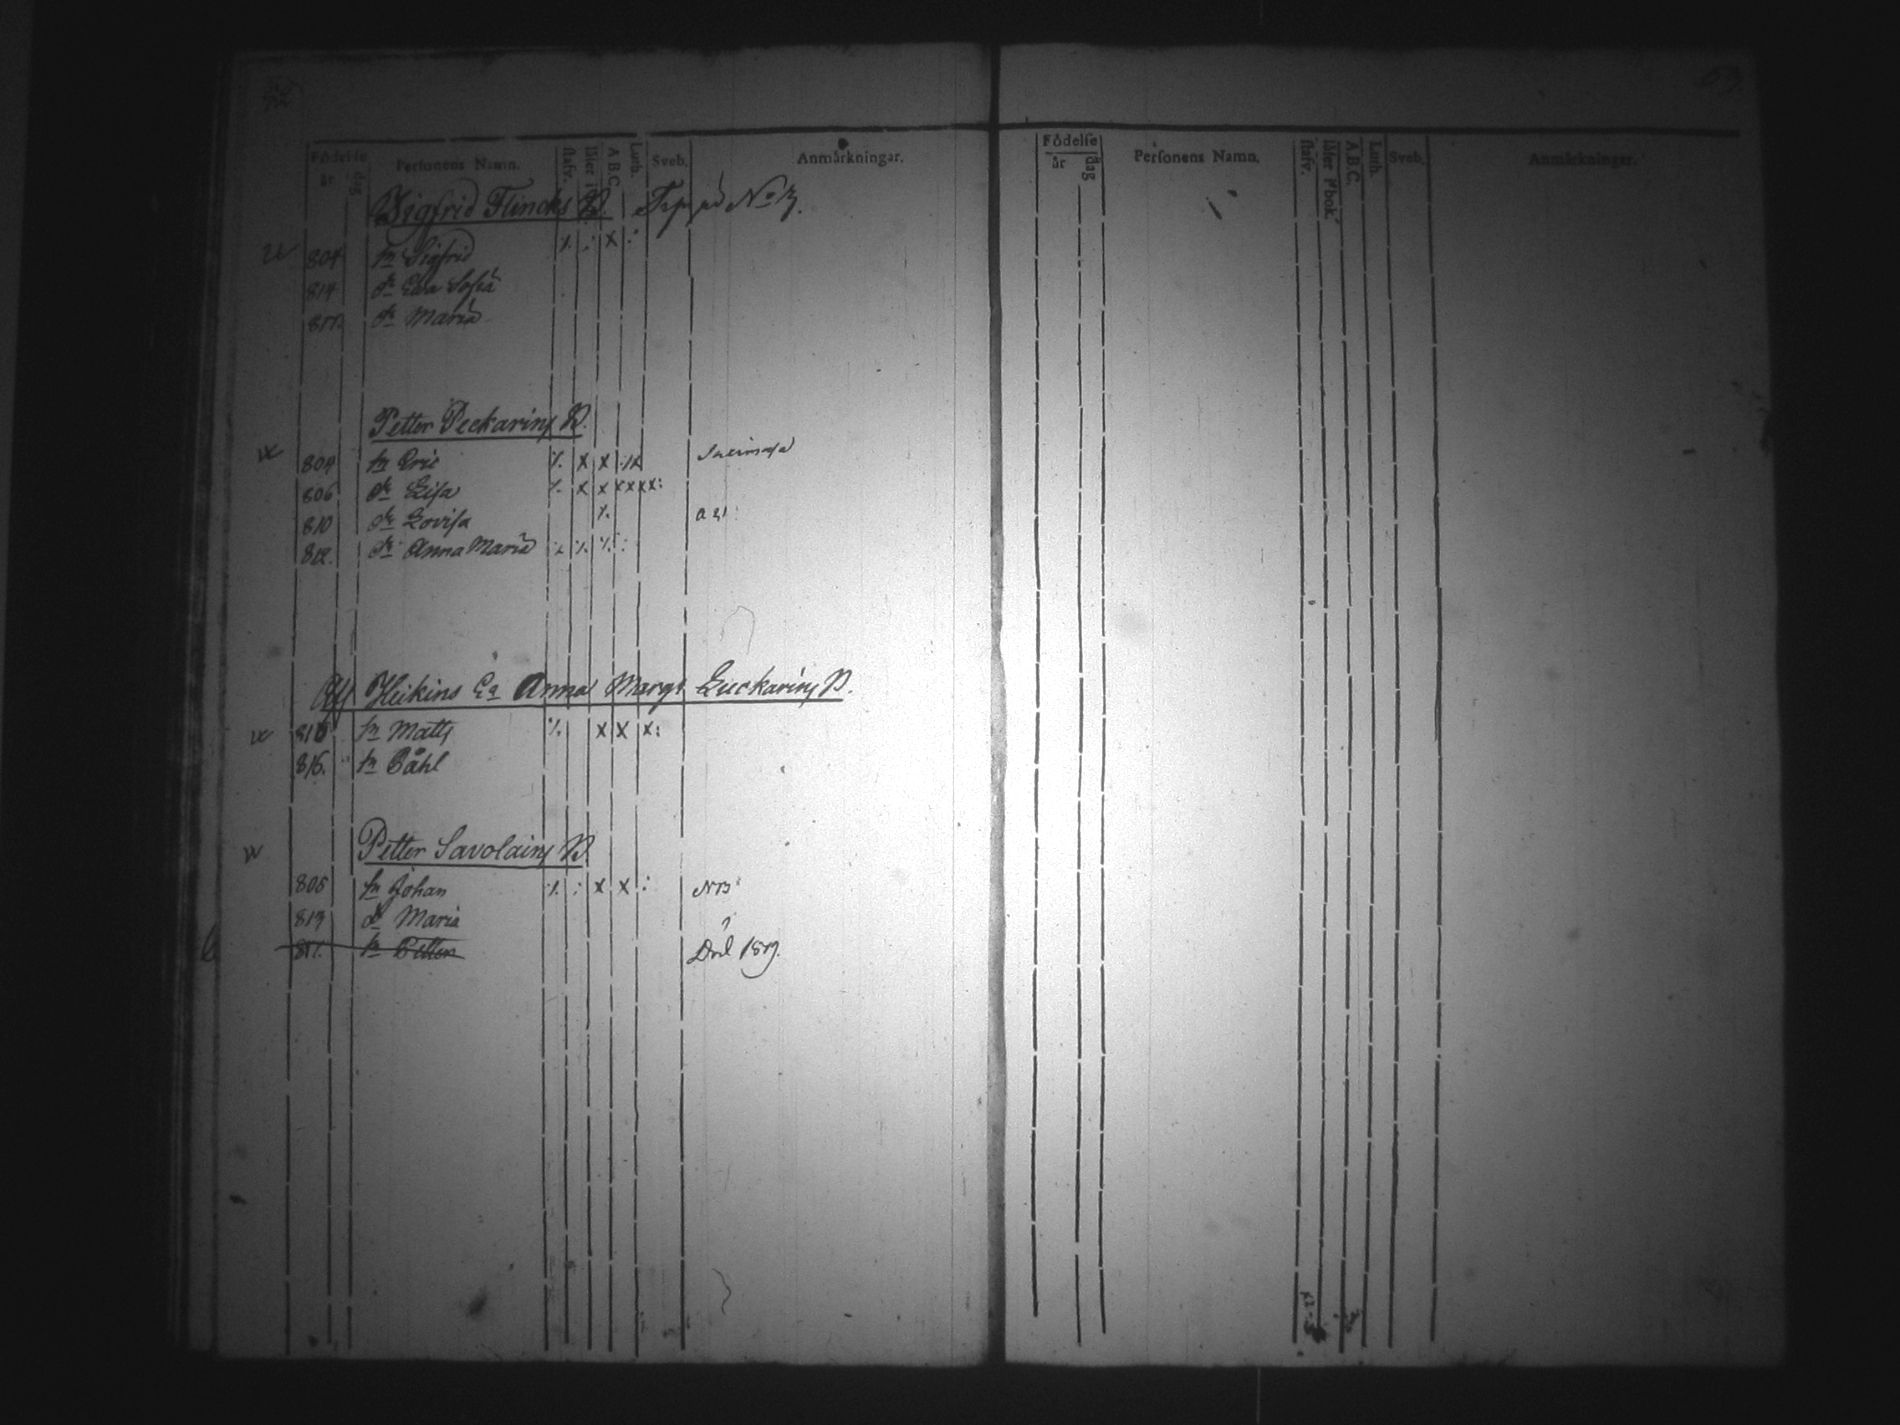 Födelse
år dag
Personens Namn.
stafv.
läser i
A.B.C.
Luth.
Sveb.
Anmärkningar.
Sigfrid Flincks B. No 3.
804 sn Sigfrid ⁒ : x :
814 dr Eva Sofia
817. dr Maria
Petter Peckarins B.
804 sn Eric ⁒ x x
806 dr Lisa ⁒ x x x x x x:
810 dr Lovisa ⁒
812. dr Anna Maria ⁒ ⁒ ⁒ :
Afl Heikins Ea Anna Margt Luckarins B.
810 sn Matts ⁒ x x x:
816. sn Påhl
Petter Savolains B.
805 sn Johan ⁒ : x x : NB
813 dr Maria
817. sn Petter Död 1819.
Födelse
år dag
Personens Namn.
stafv.
läser i bok.
A.B.C.
Luth.
Sveb.
Anmärkningar.